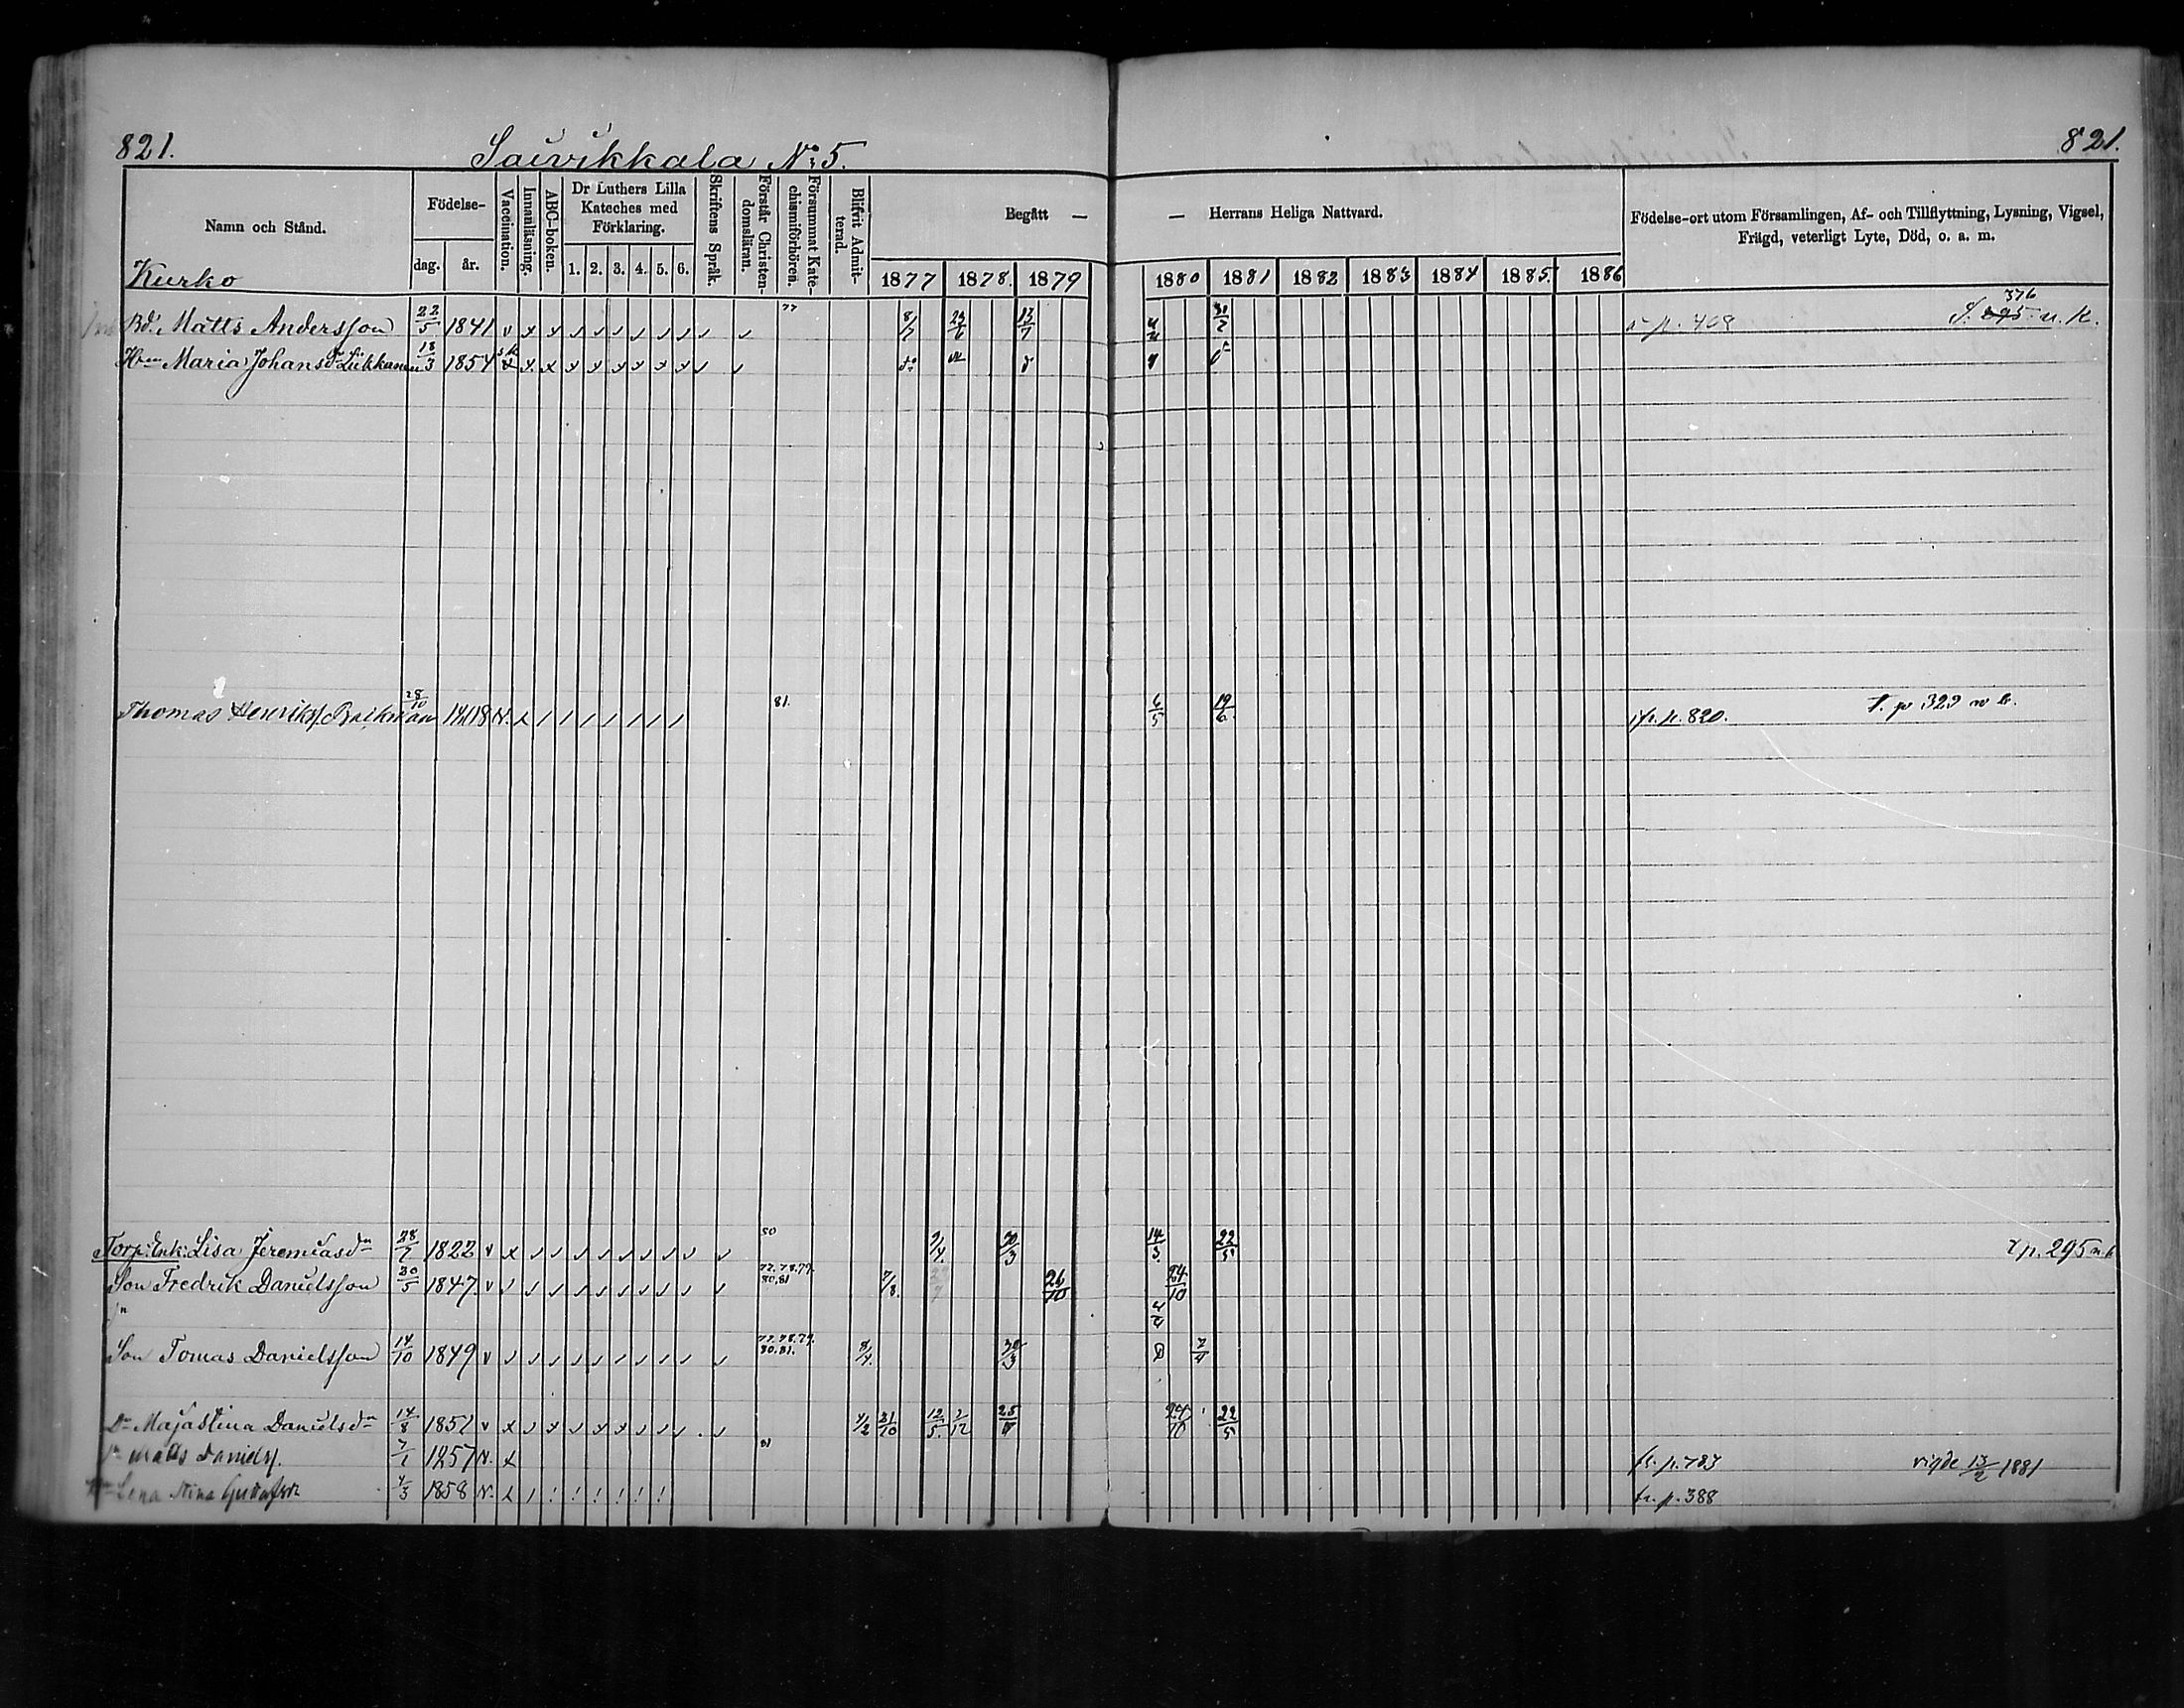 821. Saivikkala No 5. 821.
Namn och Stånd. Födelse- dag. år. Vaccination. Innanläsning. ABC-boken. Dr Luthers Lilla Kateches med Förklaring. 1. 2. 3. 4. 5. 6. Skriftens Språk. Förstår Christen-domsläran. Försummat Kate-chismiförhören. Blifvit Admit-terad. Begått — — Herrans Heliga Nattvard. Födelse-ort utom Församlingen, Af- och Tillflyttning, Lysning, Vigsel, Frägd, veterligt Lyte, Död, o. a. m.
1877 1878. 1879 1880 1881 1882 1883 1884 1885. 1886
Kurko
Bd. Matts Andersson 22/5 1841 v x x 77 8/7 23/6 13/7 p. 408 376 n. k.
Maria Johansdr 18/3 1854 x x x x x x x x x
Thomas Henrikss. 28/10 1818 81. 6/5 19/6. p. 820. T. p 329 n k.
Torp: Enk: Lisa Jeremiasdr 28/7 1822 v x 80 9/4. 30/3 14/3. 22/5 p. 295 n k
Son Fredrik Danielsson 30/5 1847 v 77. 78. 79. 80. 81 7/8. 26/10 24/10
Son Tomas Danielsson 14/10 1849 v 77. 78. 79. 80. 81. 8/4. 30/3 2/4
Dr Majastina Danielsdr 14/8 1851 v x 21/10 12/5. 2/12 22/5
Matts Daniels. 7/1 1857 v. x 81 fr. p. 783 vigde 13/2 1881
Lena Stina Gustafsdr 4/3 1858 v. x fr. p. 388